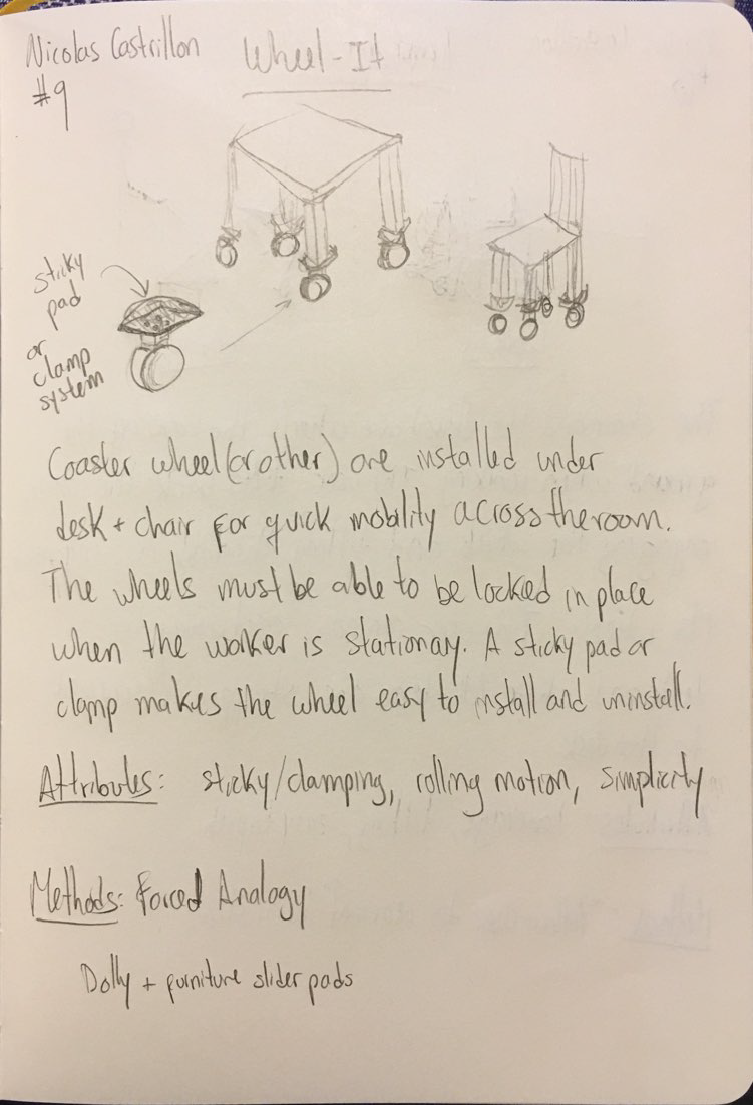 Nicolas Castrillon
#9
Wheel-It
sticky
pad
or
clamp
system
Coaster wheel (or other) are installed under
desk + chair for quick mobility across the room.
The wheels must be able to be locked in place
when the worker is stationary. A sticky pad or
clamp makes the wheel easy to install and uninstall.
Attributes: sticky/clamping, rolling motion, simplicity
Methods: Forced Analogy
Dolly + furniture slider pads